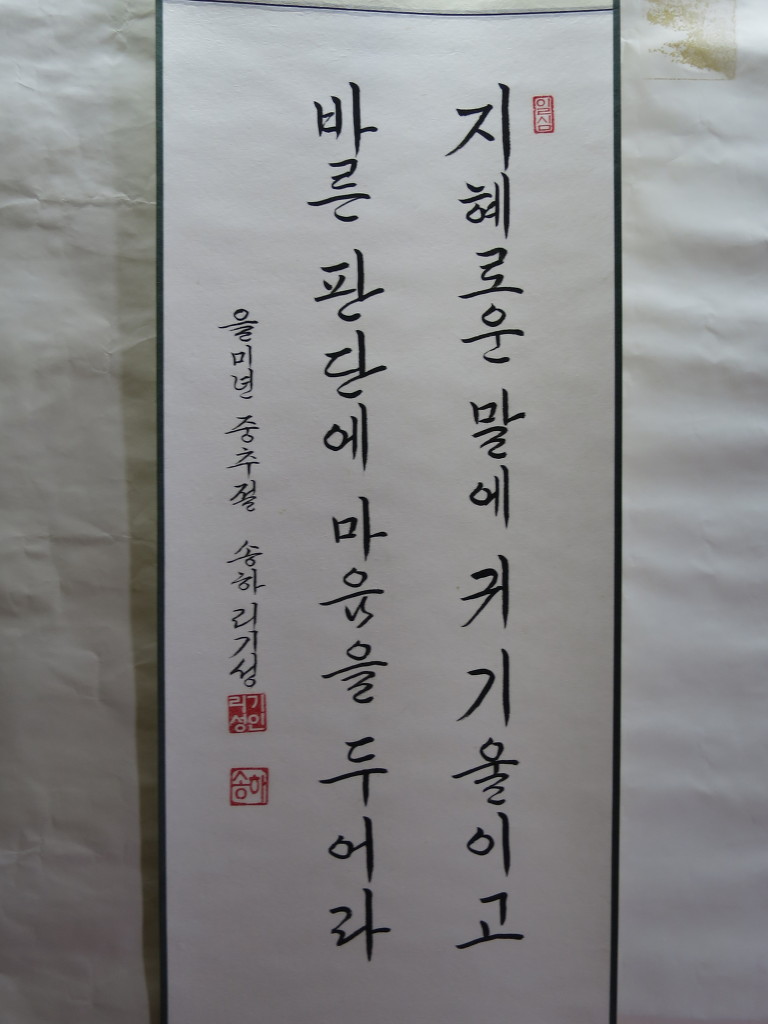 일심
지혜로운 말에 귀 기울이고
바른 판단에 마음을 두어라
을미년 중추절 송하 리기성
리기성인
송하